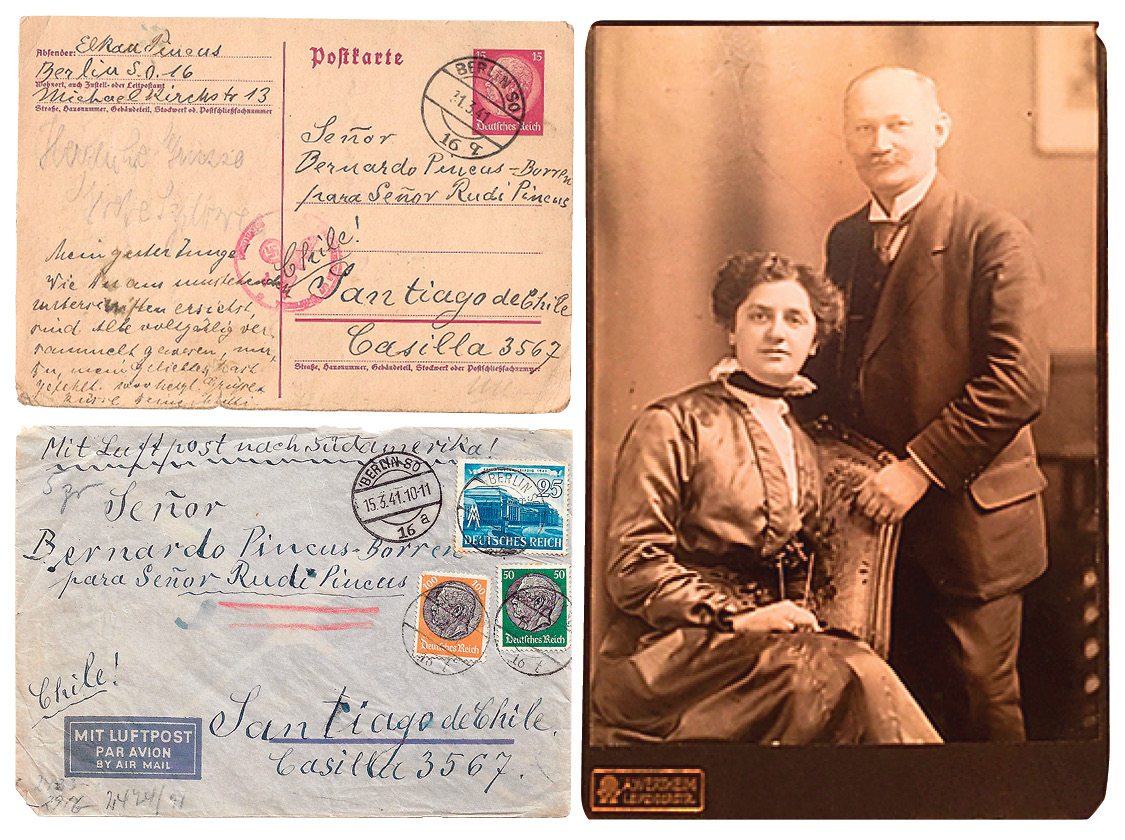 Absender: Elkan Pincus
Berlin S.O. 16
Wohnort, auch Zustell- oder Leitpostamt
Michael Kirchstr 13
Straße, Hausnummer, Gebäudeteil, Stockwerk od. Postschließfachnummer
Postkarte
15 15
Deutsches Reich
BERLIN SO
31.3.41
16
Señor
Bernardo Pincus-Borren
para Señor Rudi Pincus
Chile!
Santiago de Chile
Casilla 3567
Straße, Hausnummer, Gebäudeteil, Stockwerk oder Postschließfachnummer
Mein guter Junge
Wie Du aus
ersiehst,
sind Alle vollzählig ver
sammelt gewesen, nur
Du, mein geliebter, hast
gefehlt.
Mit Luftpost nach Südamerika!
BERLIN SO
15.3.41.10-11
16 a
25
DEUTSCHES REICH
100 100
Deutsches Reich
50 50
Deutsches Reich
Señor
Bernardo Pincus-Borren
para Señor Rudi Pincus
Chile!
Santiago de Chile.
Casilla 3567.
MIT LUFTPOST
PAR AVION
BY AIR MAIL
A.WERTHEIM